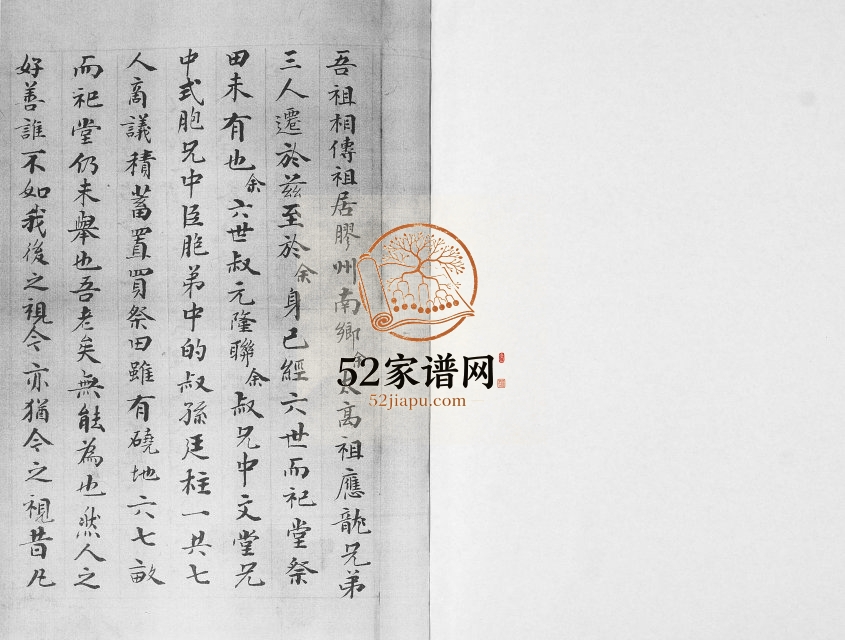 吾祖相傳祖居膠州南鄉余太高祖應龍兄弟
三人遷於茲至於余身已經六世而祀堂祭
田未有也余六世叔元隆聯余叔兄中文堂兄
中式胞兄中臣胞弟中的叔孫廷柱一共七
人商議積蓄置買祭田雖有磽地六七畝
而祀堂仍未舉也吾老矣無能為也然人之
好善誰不如我後之視今亦猶今之視昔凡
52家谱网
52jiapu.com